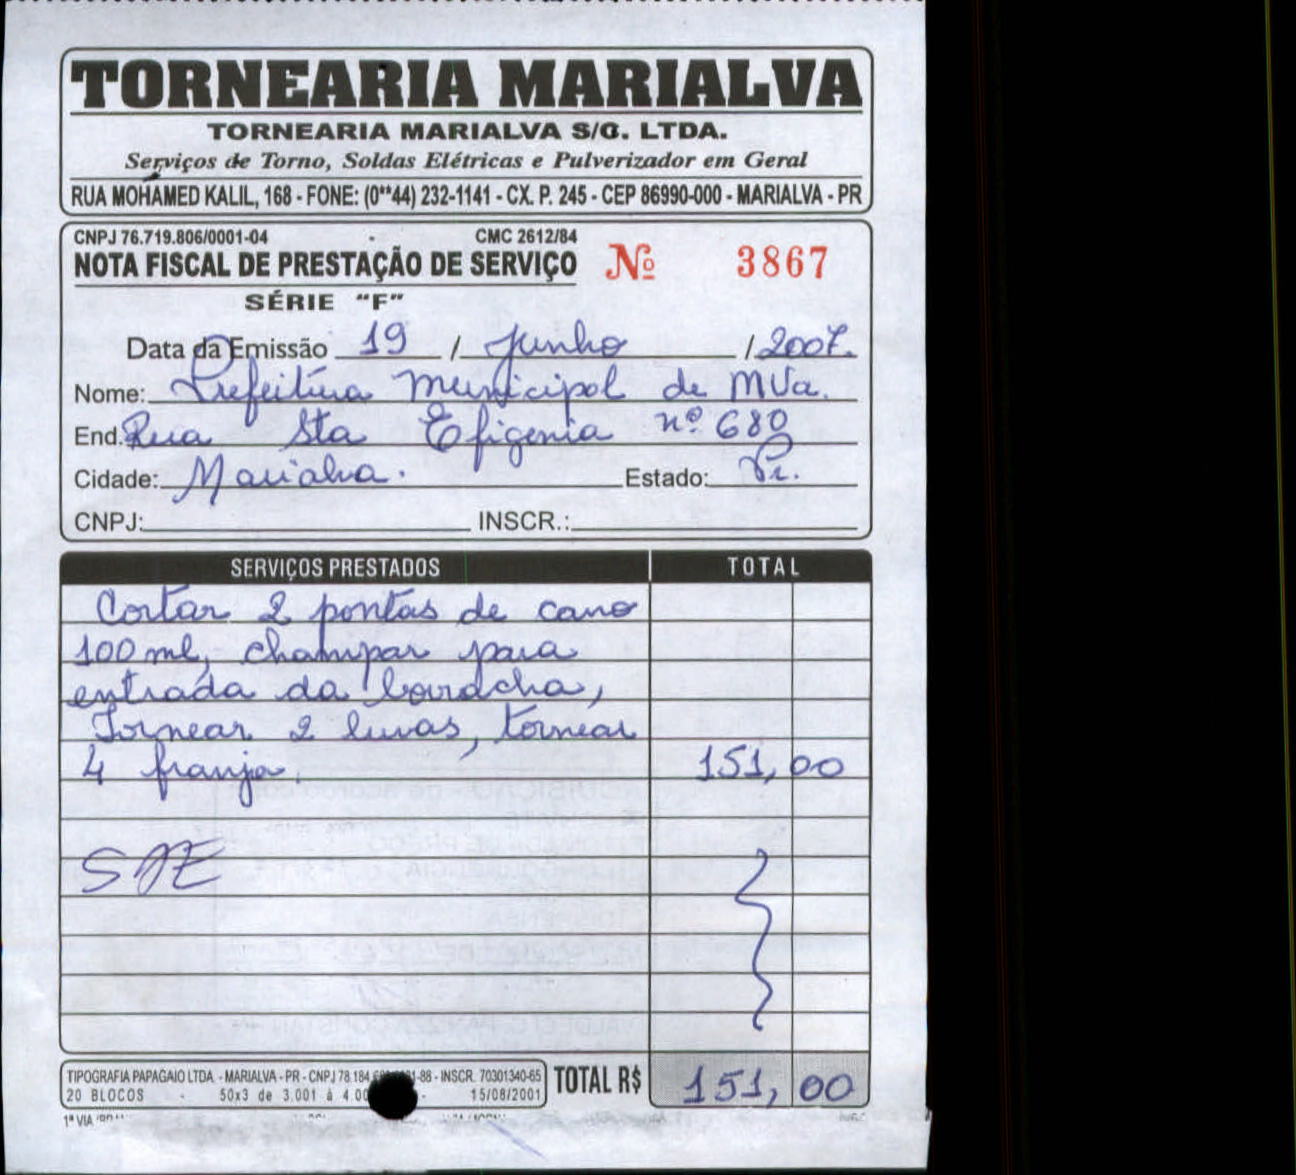 TORNEARIA MARIALVA
TORNEARIA MARIALVA S/C. LTDA.
Serviços de Torno, Soldas Elétricas e Pulverizador em Geral
RUA MOHAMED KALIL, 168 - FONE: (0**44) 232-1141 - CX. P. 245 - CEP 86990-000 - MARIALVA - PR
CNPJ 76.719.806/0001-04 CMC 2612/84
NOTA FISCAL DE PRESTAÇÃO DE SERVIÇO Nº 3867
SÉRIE "F"
Data da Emissão 19 / Junho / 2007.
Nome: Prefeitura Municipal de MVa.
End. Rua Sta Efigenia nº 680
Cidade: Marialva. Estado: Pr.
CNPJ: INSCR.:
SERVIÇOS PRESTADOS TOTAL
Cortar 2 pontas de cano
100 ml, champar para
entrada da borracha,
Tornear 2 luvas, tornear
4 franja. 151,00
TIPOGRAFIA PAPAGAIO LTDA - MARIALVA - PR - CNPJ 78.184. -88 - INSCR. 70301340-65
20 BLOCOS - 50x3 de 3.001 à 4.00 - 15/08/2001
TOTAL R$ 151,00
1ª VIA